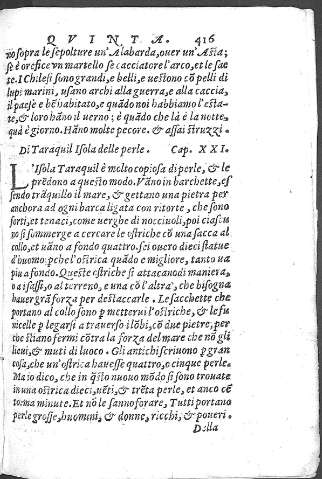 QVINTA. 416
no sopra le sepolture un'Alabarda, ouer un'Asia;
se è orefice vn martello se cacciatore l'arco, et le sae
te. I Chilesi sono grandi, e belli, e uestono cō pelli di
lupi marini, usano archi alla guerra, e alla caccia,
il paese è bē habitato, e quādo noi habbiamo l'esta-
te, & loro hāno il uerno; è quādo che là è la notte,
quà è giorno. Hāno molte pecore. & assai struzzi.
Di Taraquil Isola delle perle. Cap. XXI.
L'Isola Taraquil è molto copiosa di perle, & le
prēdono a questo modo. Vāno in barchette, es
sendo trāquillo il mare, & gettano una pietra per
anchora ad ogni barca ligata con ritorte, che sono
forti, et tenaci, come uerghe di nocciuoli, poi ciascu
no si sommerge a cercare le ostriche cō una sacca al
collo, et uāno a fondo quattro. sei ouero dieci statue
d'huomo: pche l'ostrica quādo e migliore, tanto ua
piu a fondo. Queste ostriche si attacano di maniera,
o a i sassi, o al terreno, e una cō l'altra, che bisogna
hauer grā forza per destaccarle. Le sacchette che
portano al collo sono p metterui l'ostriche, & le fu
nicelle p legarsi a trauerso i lōbi, cō due pietre, per
che stiano fermi cōtra la forza del mare che nō gli
lieui, & muti di luoco. Gli antichi scriuono p gran
cosa, che un'ostrica hauesse quattro, e cinque perle.
Ma io dico, che in q̄sto nuouo mōdo si sono trouate
in una ostrica dieci, uēti, & trēta perle, et anco cē
to: ma minute. Et nō le sanno forare, Tutti portano
perle grosse, huomini, & donne, ricchi, & poueri.
Della